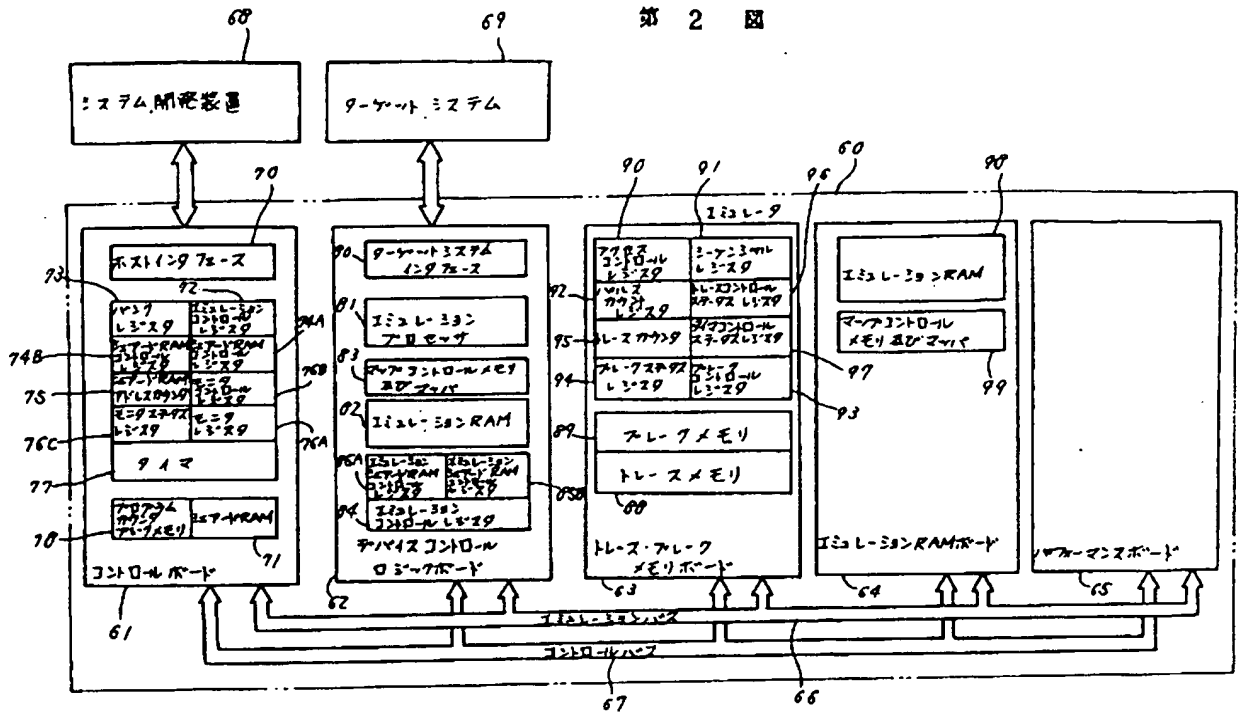 第 2 図
68
69
システム開発装置
ターゲットシステム
70
90
91
96
98
60
エミュレータ
ホストインタフェース
73
72
バンク
レジスタ
エミュレーション
コントロール
レジスタ
74A
74B
シェアードRAM
コントロール
レジスタ
シェアードRAM
コントロール
レジスタ
75
シェアードRAM
アドレスカウンタ
モニタ
コントロール
レジスタ
76B
76C
モニタステータス
レジスタ
モニタ
レジスタ
76A
77
タイマ
78
プログラム
カウンタ
ブレークメモリ
シェアードRAM
71
コントロールボード
61
80
ターゲットシステム
インタフェース
81
エミュレーション
プロセッサ
83
マップコントロールメモリ
及びマッパ
82
エミュレーションRAM
エミュレーション
シェアードRAM
コントロール
レジスタ
エミュレーション
シェアードRAM
コントロール
レジスタ
85B
84
エミュレーション
コントロールレジスタ
デバイスコントロール
ロジックボード
62
アクセス
コントロール
レジスタ
シーケンシャル
レジスタ
92
パルス
カウント
レジスタ
トレースコントロール
ステータスレジスタ
95
トレースカウンタ
タイマコントロール
ステータスレジスタ
97
94
ブレークステータス
レジスタ
ブレーク
コントロール
レジスタ
93
89
ブレークメモリ
トレースメモリ
88
トレース・ブレーク
メモリボード
63
エミュレーションRAM
マップコントロール
メモリ及びマッパ
99
エミュレーションRAMボード
64
パフォーマンスボード
65
エミュレーションバス
コントロールバス
67
66